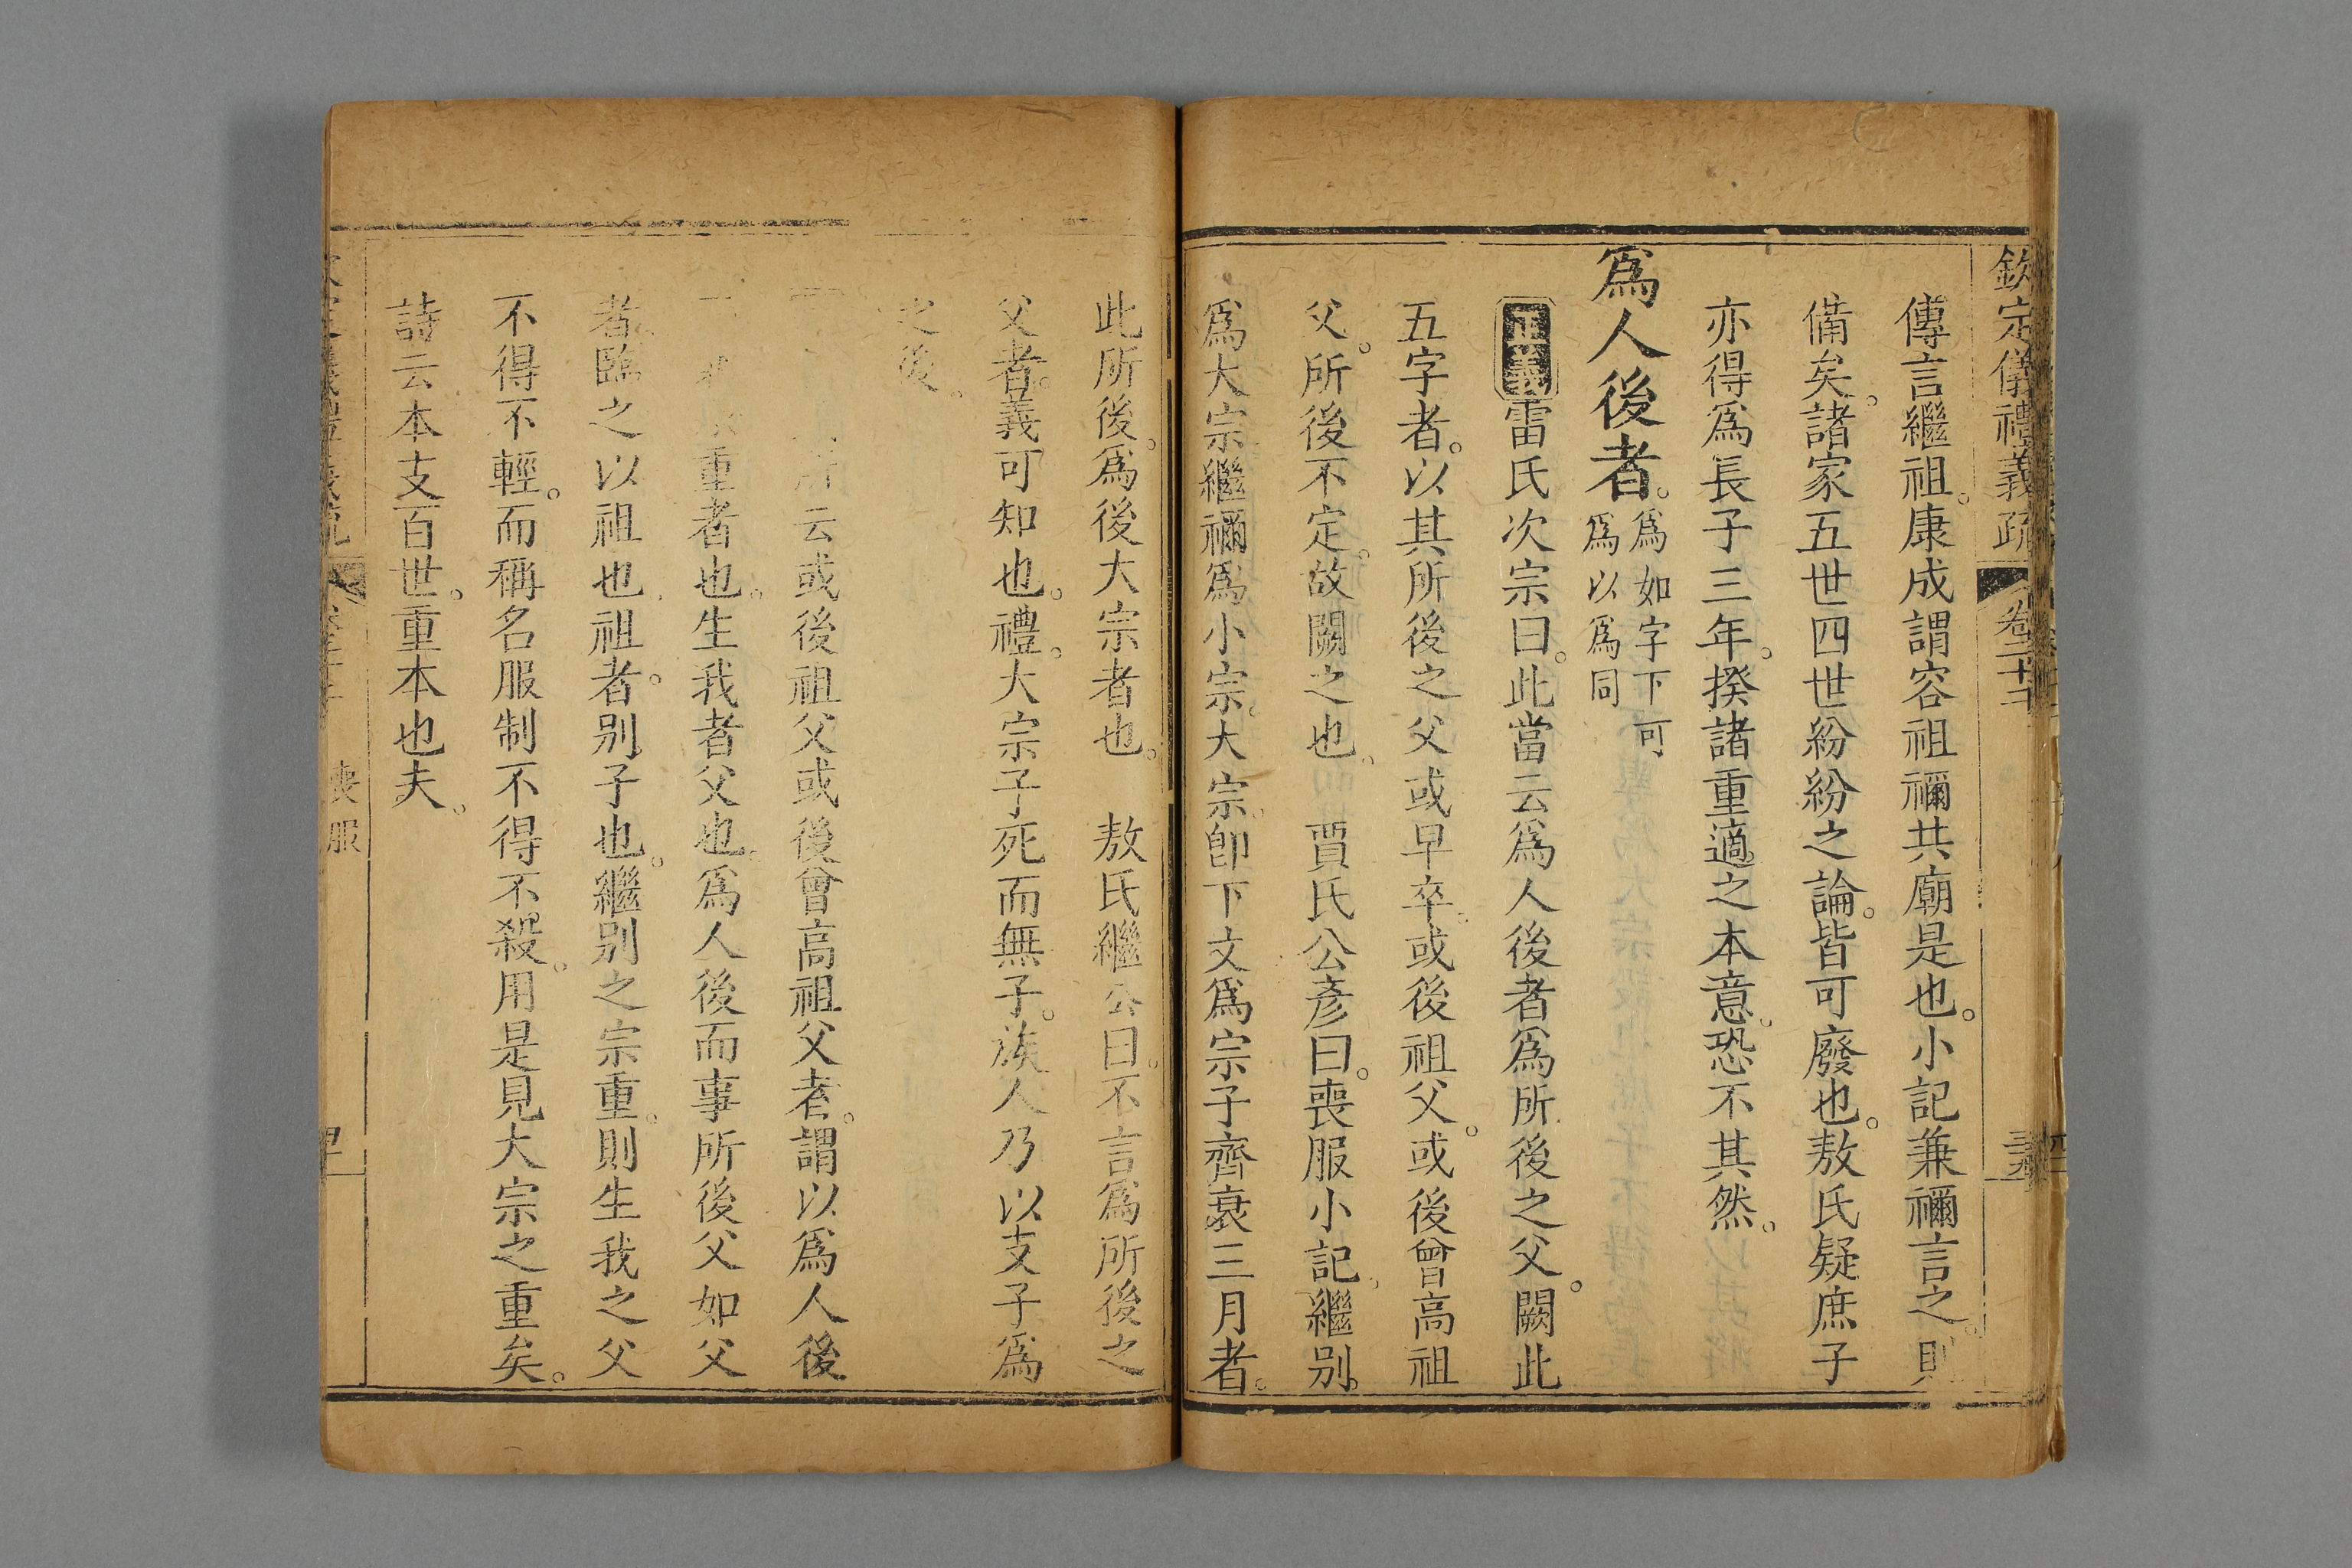 欽定儀禮義疏 卷二十二
傳言繼祖。康成謂容祖禰共廟是也。小記兼禰言之。則
備矣。諸家五世四世紛紛之論。皆可廢也。敖氏疑庶子
亦得爲長子三年。揆諸重適之本意。恐不其然。
爲人後者。爲如字下可
爲以爲同
正義雷氏次宗曰。此當云爲人後者爲所後之父。闕此
五字者。以其所後之父或早卒。或後祖父。或後曾高祖
父。所後不定。故闕之也。 賈氏公彥曰。喪服小記。繼别。
爲大宗繼禰爲小宗。大宗。卽下文爲宗子齊衰三月者。
此所後。爲後大宗者也。 敖氏繼公曰。不言爲所後之
父者。義可知也。禮。大宗子死而無子。族人乃以支子爲
之後。
所云或後祖父或後曾高祖父者。謂以爲人後
重者也。生我者父也。爲人後而事所後父如父
者。臨之以祖也。祖者。别子也。繼别之宗重。則生我之父
不得不輕。而稱名服制不得不殺。用是見大宗之重矣。
詩云本支百世。重本也夫。
喪服